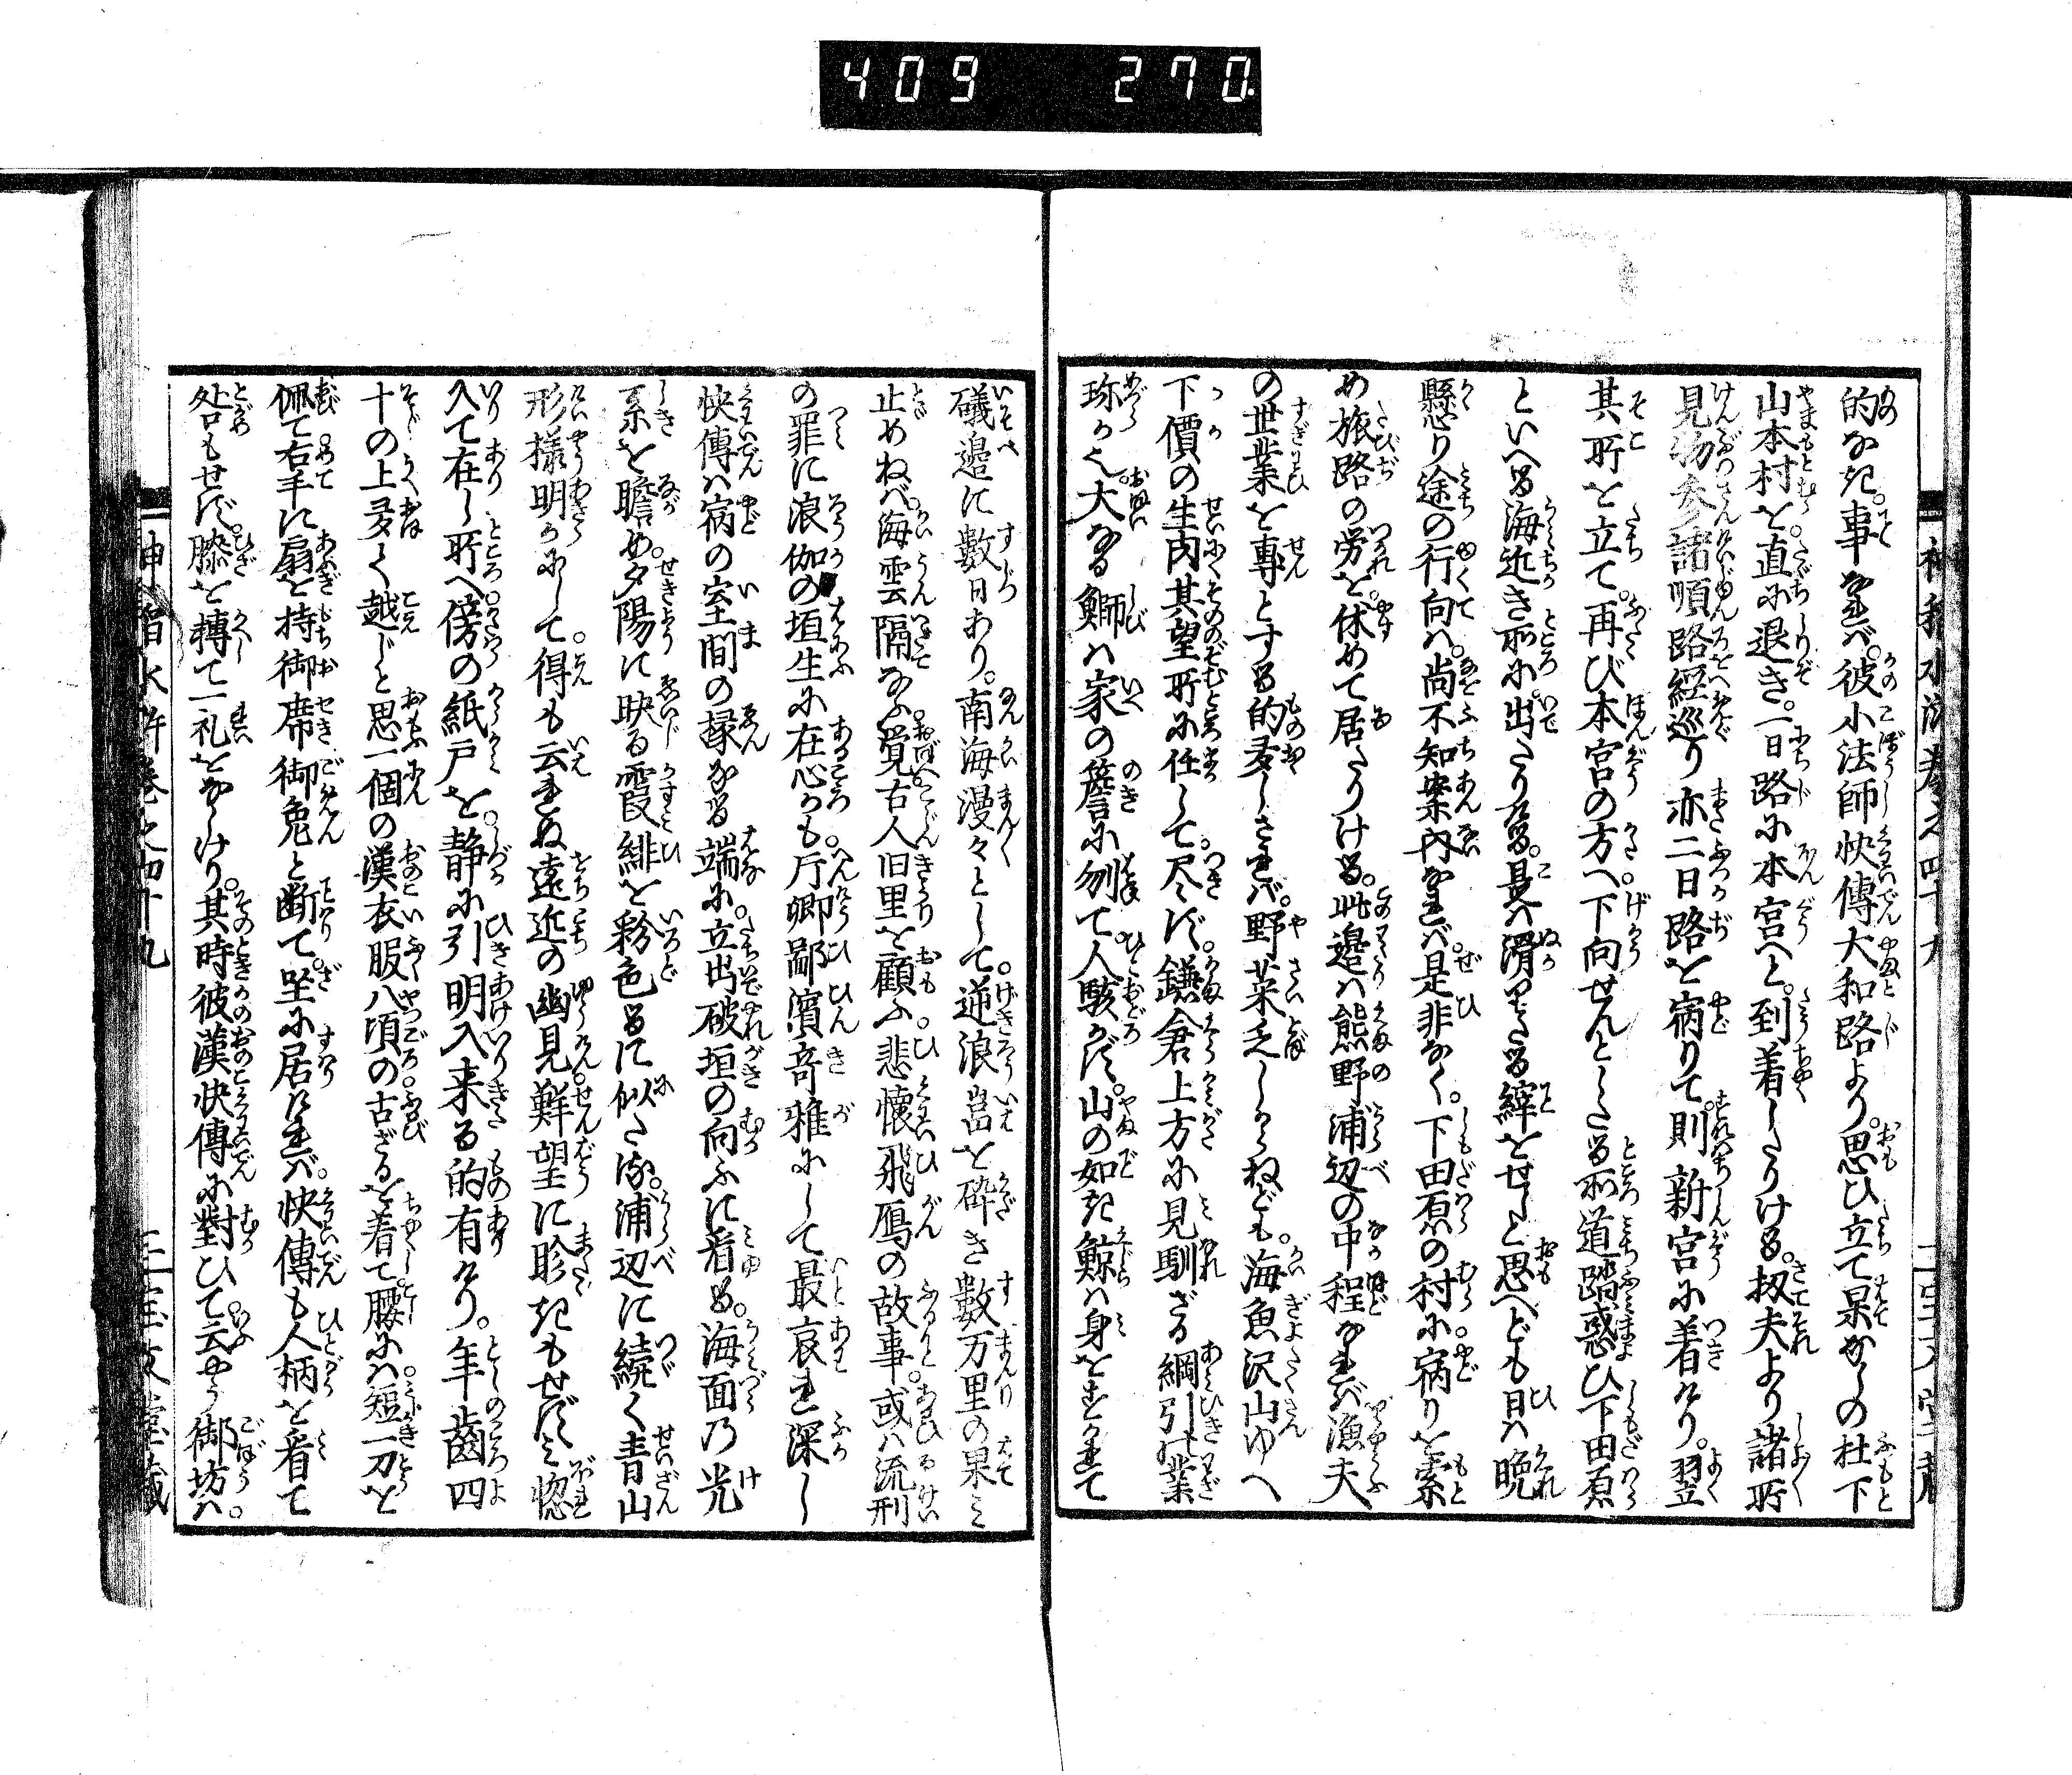 409 270
的なき事なれば。彼小法師快傳大和路より。思ひ立て杲かしの杜下
山本村を直に退き。一日路に本宮へと。到着したりける。扨夫より諸所
見物参詣順路経巡り亦二日路を宿りて則新宮に着けり。翌
其所を立て。再び本宮の方へ下向せんとしたる所道踏惑ひ下田原
といへる海近き所に出たりける。是は滑りたる縡をせしと思へども日は晩
懸り途の行向は。尚不知案内なれば是非なく。下田原の村に宿りを索
め旅路の労を。休めて居たりける。此邉は熊野浦辺の中程なれば漁夫
の世業を專とする的多しされば。野菜乏しからねども。海魚沢山ゆへ
下價の生肉其望所に任して。尽ず。鎌倉上方に見馴ざる綱引業
珎らし。大なる鰤は家の簷に刎て。人駭かず。山の如き鯨は身をまかせて
礒邉に數日あり。南海漫々として。逆浪嵓を砕き數万里の果ミ
止めねば海雲隔なふ。覚古人旧里を顧ふ。悲懐飛鴈の故事。或は流刑
の罪に浪伽の垣生に在心かも。片郷鄙濱奇雅にして最哀れ深し
快傳は病の室間の縁なる端に。立出破垣の向ふに看る。海面乃光
系を瞻め。夕陽に映る霞緋を粉色るに似たり。浦辺に續く青山
形樣明かにして。得も云れぬ遠近の幽見。鮮望に眇きもせず。惚
入て在し所へ。傍の紙戸を。静に引明入来る的有けり。年齒四
十の上多く越じと思一個の漢衣服八頃の古ざるを着て。腰には。短一刀を
佩て右手に扇を持御席御免と断て。坐に居ければ。快傳も人柄を看て
咎もせず。膝を摶て一礼をなしけり。其時彼漢快傳に對ひて。云やう御坊は。
神稻水滸巻之四十九